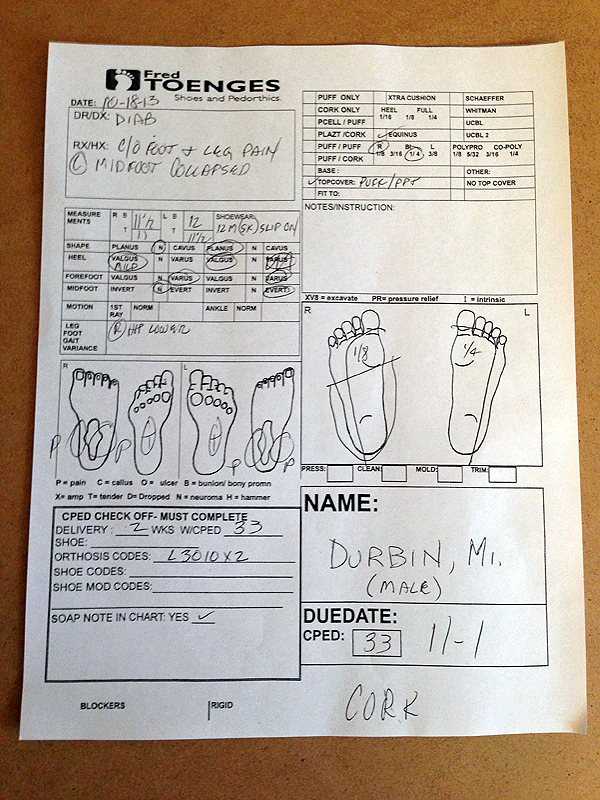 Fred
TOENGES
Shoes and Pedorthics.
DATE: 10-18-13
DR/DX: DIAB
RX/HX: C/O FOOT & LEG PAIN
Ⓛ MIDFOOT COLLAPSED
PUFF ONLY XTRA CUSHION SCHAEFFER
CORK ONLY HEEL FULL WHITMAN
PCELL / PUFF 1/16 1/8 1/4 UCBL
PLAZT /CORK ✓ EQUINUS UCBL 2
PUFF / PUFF R BI L POLYPRO CO-POLY
PUFF / CORK 1/8 3/16 1/4 3/8 1/8 5/32 3/16 1/4
BASE : OTHER:
✓ TOPCOVER: PUFF/PPT NO TOP COVER
FIT TO:
NOTES/INSTRUCTION:
MEASURE MENTS R B 11 1/2 L B 12 SHOEWEAR
T 11 T 11 1/2 12M (SK) SLIP ON
SHAPE PLANUS N CAVUS PLANUS N CAVUS
HEEL VALGUS N VARUS VALGUS N VARUS
MILD
FOREFOOT VALGUS N VARUS VALGUS N VARUS
MIDFOOT INVERT N EVERT INVERT N EVERT
MOTION 1ST RAY NORM ANKLE NORM
LEG FOOT GAIT VARIANCE Ⓡ HIP LOWER
XV8 = excavate PR= pressure relief I = intrinsic
R L
1/8 1/4
R L
P P P P
P = pain C = callus O = ulcer B = bunion/ bony promn
X= amp T= tender D= Dropped N = neuroma H = hammer
PRESS: CLEAN: MOLD: TRIM:
CPED CHECK OFF- MUST COMPLETE
DELIVERY : 2 WKS W/CPED 33
SHOE:
ORTHOSIS CODES: L3010 X 2
SHOE CODES:
SHOE MOD CODES:
SOAP NOTE IN CHART: YES ✓
NAME:
DURBIN, MI.
(MALE)
DUEDATE:
CPED: 33 11-1
BLOCKERS RIGID
CORK